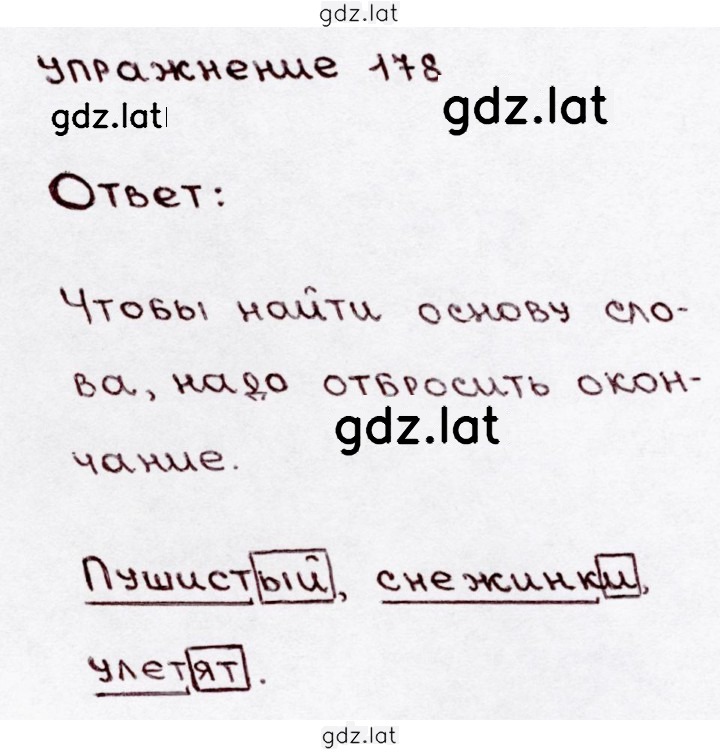 gdz.lat
Упражнение 178
gdz.lat
gdz.lat
Ответ:
Чтобы найти основу сло-
ва, надо отбросить окон-
gdz.lat
чание.
Пушистый, снежинки,
улетят.
gdz.lat